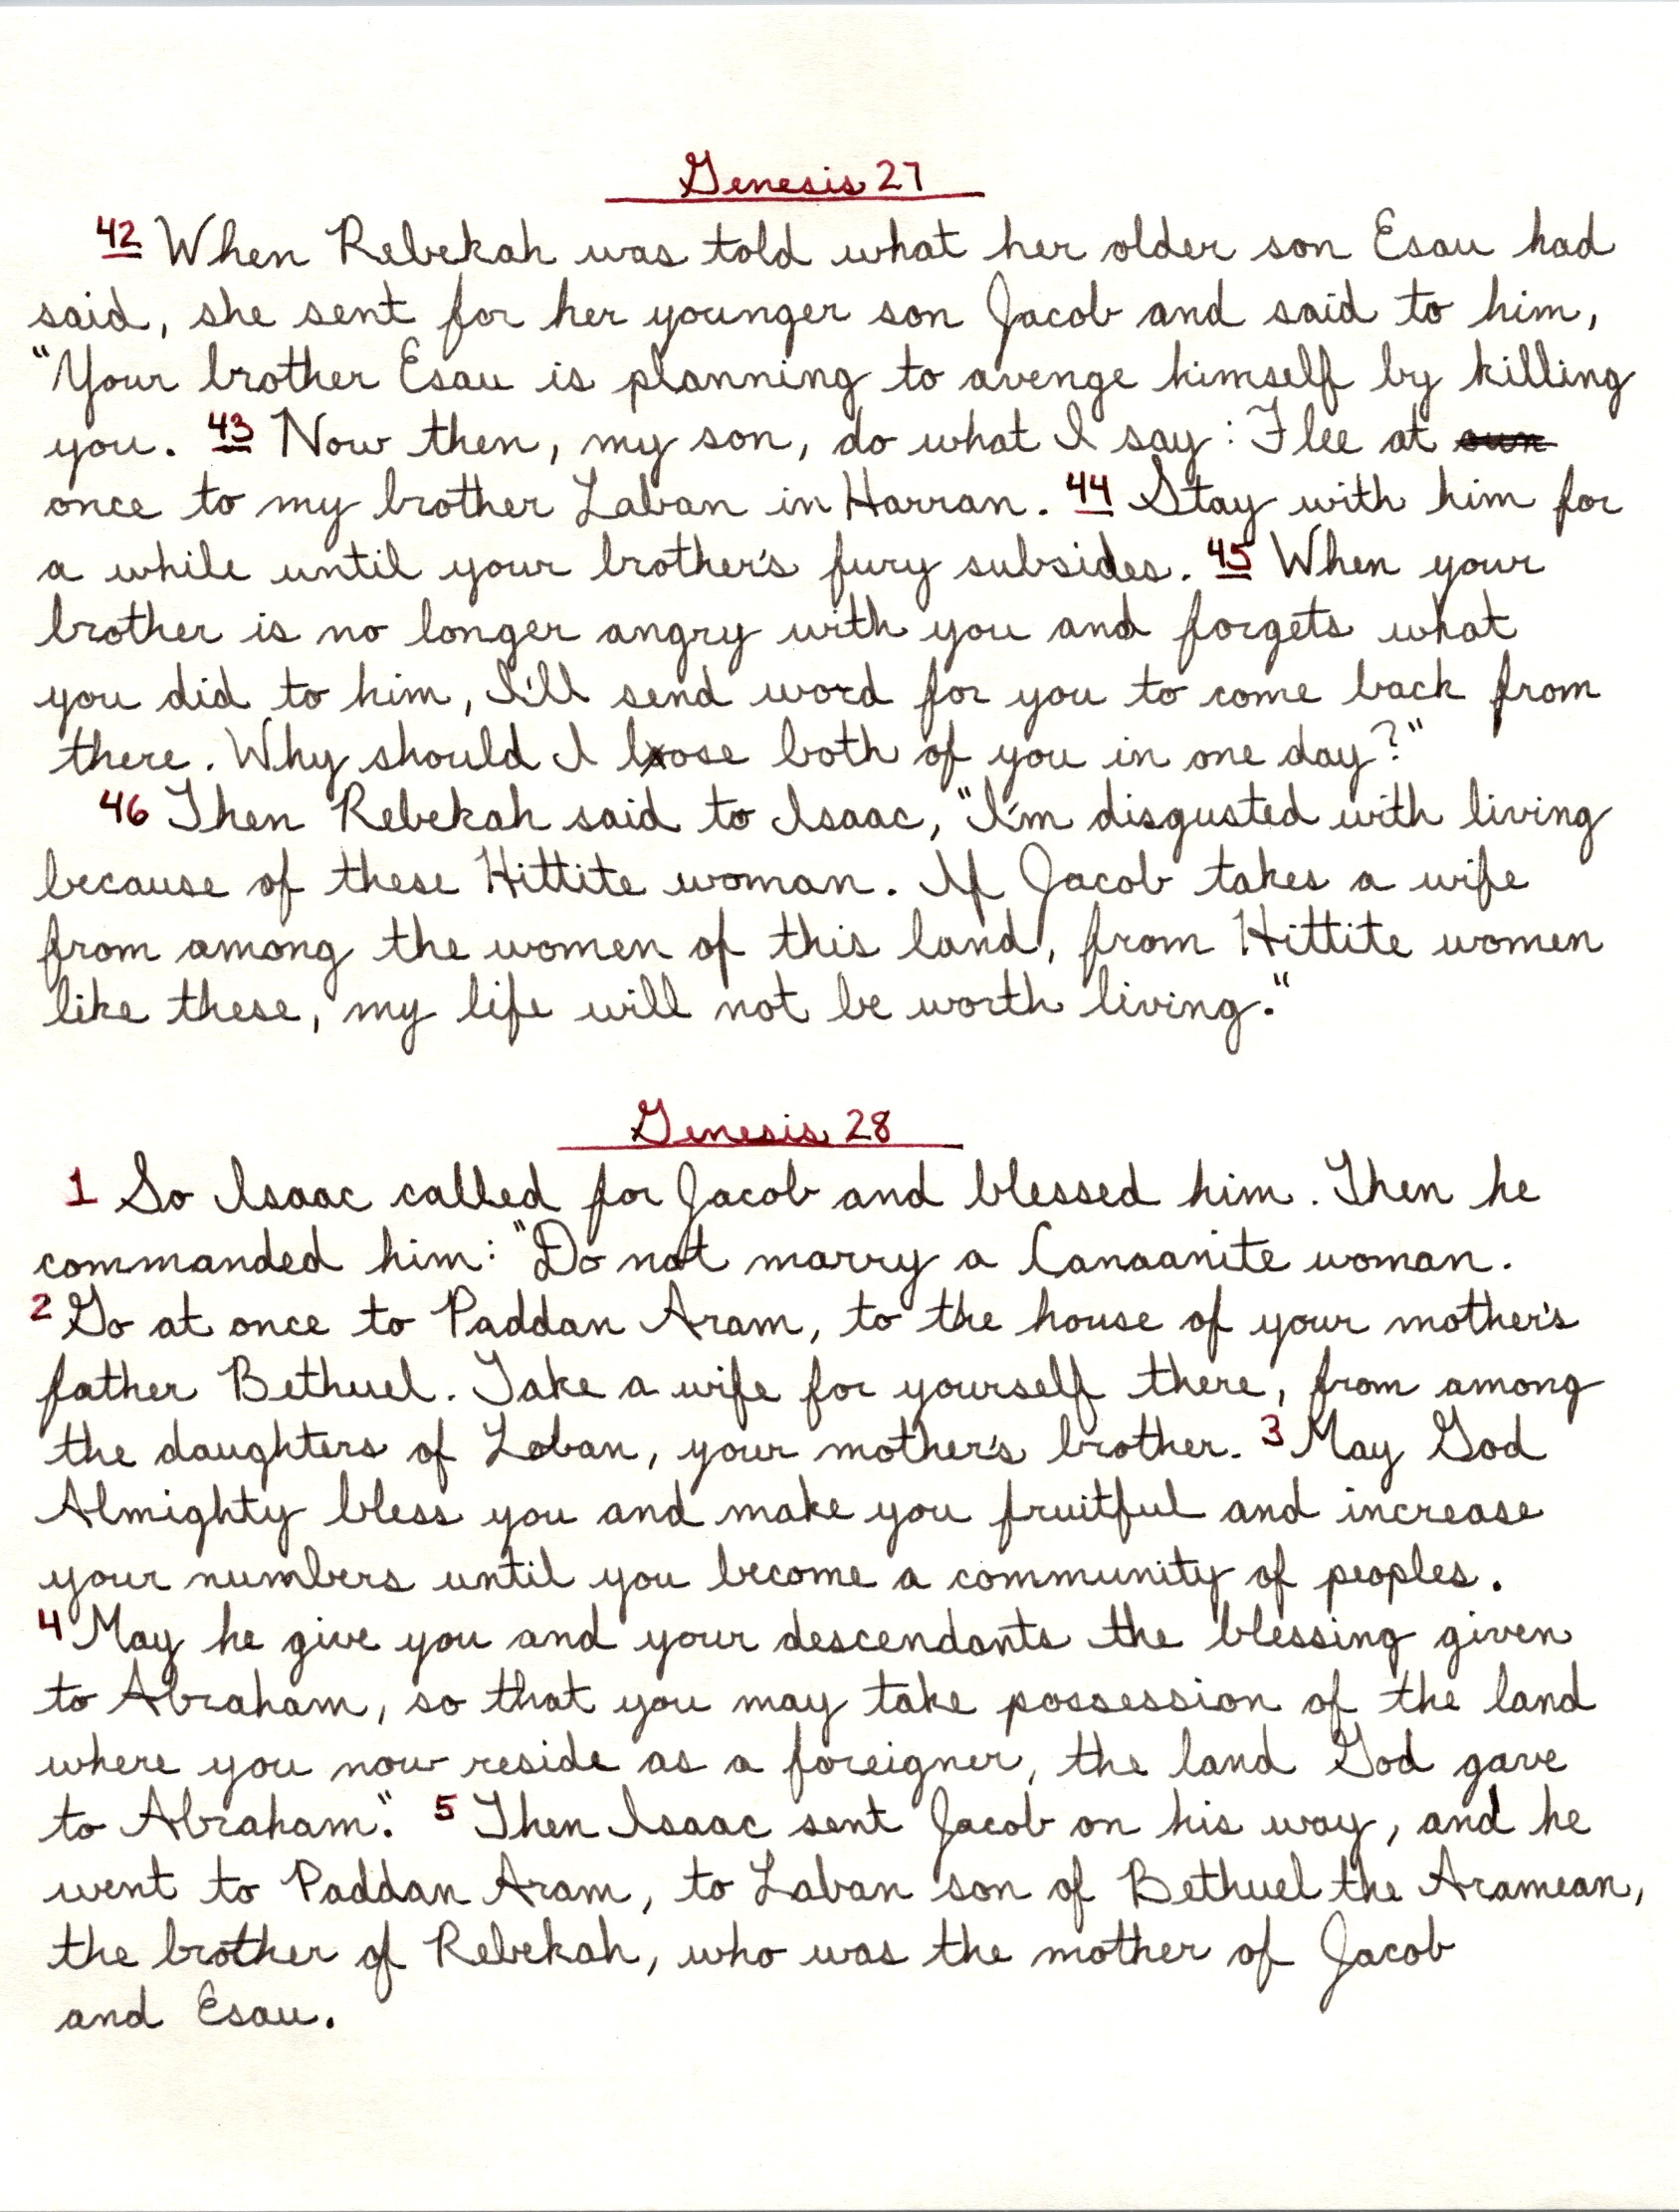 Genesis 27
42 When Rebekah was told what her older son Esau had
said, she sent for her younger son Jacob and said to him,
"Your brother Esau is planning to avenge himself by killing
you. 43 Now then, my son, do what I say: Flee at
once to my brother Laban in Harran. 44 Stay with him for
a while until your brother's fury subsides. 45 When your
brother is no longer angry with you and forgets what
you did to him, I'll send word for you to come back from
there. Why should I lose both of you in one day?"
46 Then Rebekah said to Isaac, "I'm disgusted with living
because of these Hittite woman. If Jacob takes a wife
from among the women of this land, from Hittite women
like these, my life will not be worth living."
Genesis 28
1 So Isaac called for Jacob and blessed him. Then he
commanded him: "Do not marry a Canaanite woman.
2 Go at once to Paddan Aram, to the house of your mother's
father Bethuel. Take a wife for yourself there, from among
the daughters of Laban, your mother's brother. 3 May God
Almighty bless you and make you fruitful and increase
your numbers until you become a community of peoples.
4 May he give you and your descendants the blessing given
to Abraham, so that you may take possession of the land
where you now reside as a foreigner, the land God gave
to Abraham." 5 Then Isaac sent Jacob on his way, and he
went to Paddan Aram, to Laban son of Bethuel the Aramean,
the brother of Rebekah, who was the mother of Jacob
and Esau.